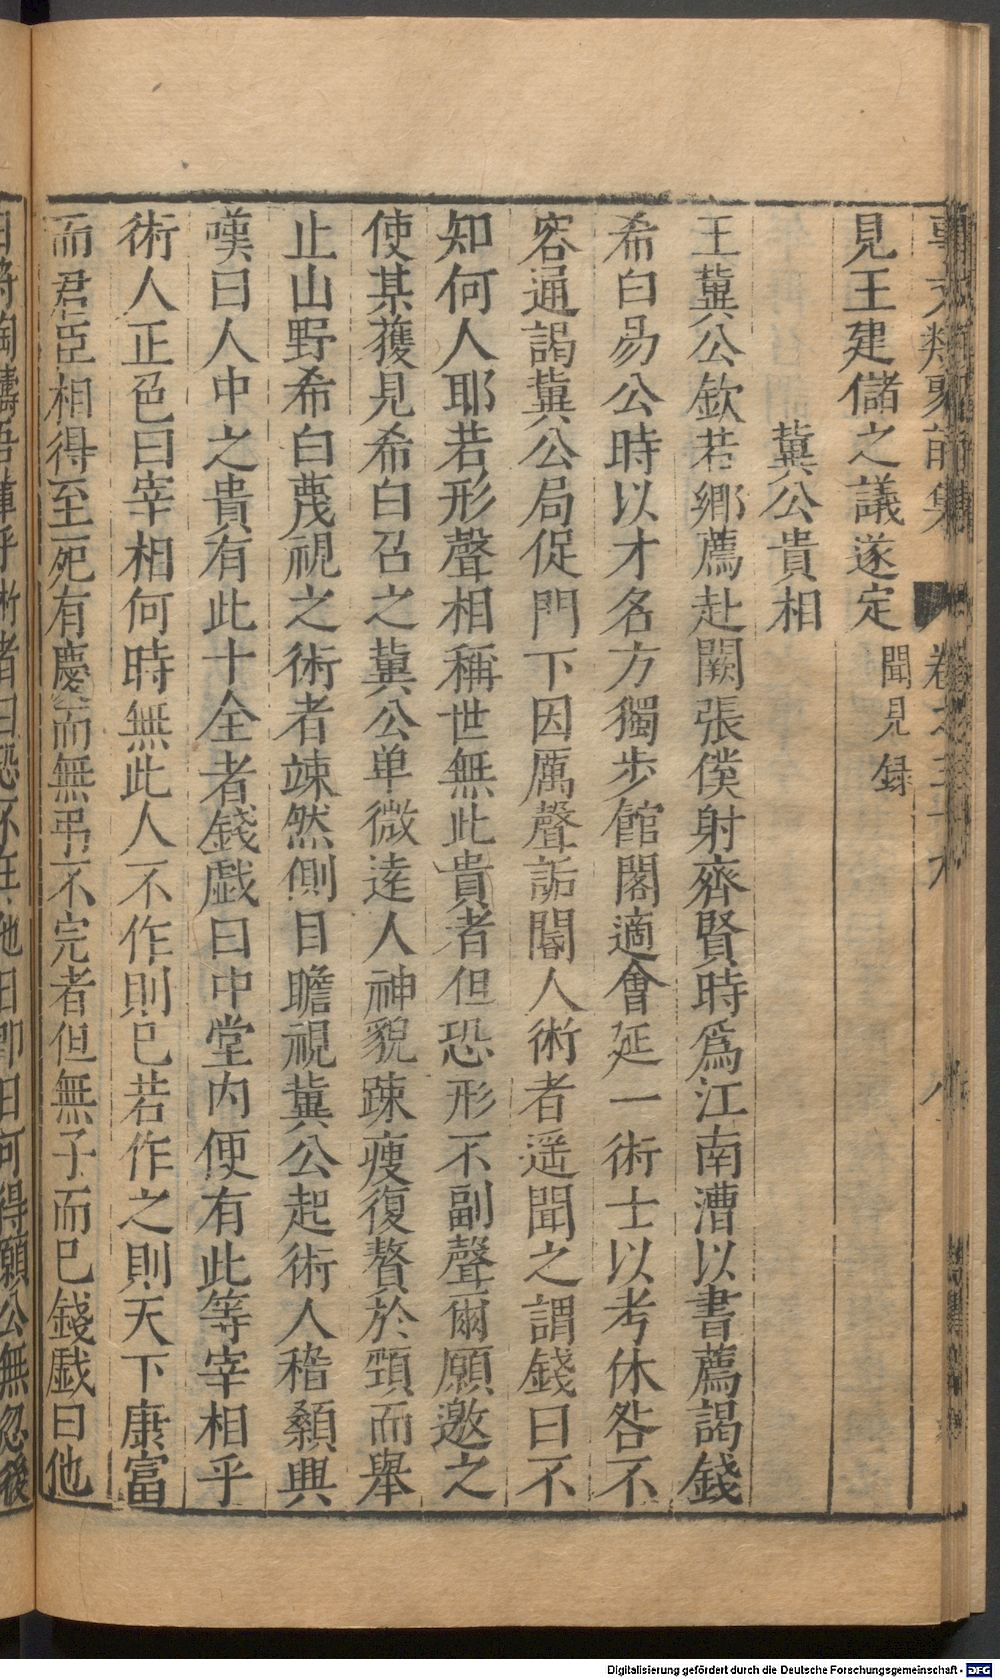 事文類聚前集 卷之三十九 八
見王建儲之議遂定 聞見録
冀公貴相
王冀公欽若鄉薦赴闕張僕射齊賢時爲江南漕以書薦謁錢
希白易公時以才名方獨步館閣適會延一術士以考休咎不
容通謁冀公局促門下因厲聲詬閽人術者遥聞之謂錢曰不
知何人耶若形聲相稱世無此貴者但恐形不副聲爾願邀之
使某獲見希白召之冀公单微逹人神貌踈瘦復贅於頸而舉
止山野希白蔑視之術者竦然側目瞻視冀公起術人稽顙興
嘆曰人中之貴有此十全者錢戯曰中堂内便有此等宰相乎
術人正色曰宰相何時無此人不作則已若作之則天下康富
而君臣相得至死有慶而無弔不完者但無子而已錢戯曰他
日將陶鑄吾輩乎術者曰恐不在他日即日可得願公無忽後
Digitalisierung gefördert durch die Deutsche Forschungsgemeinschaft - DFG